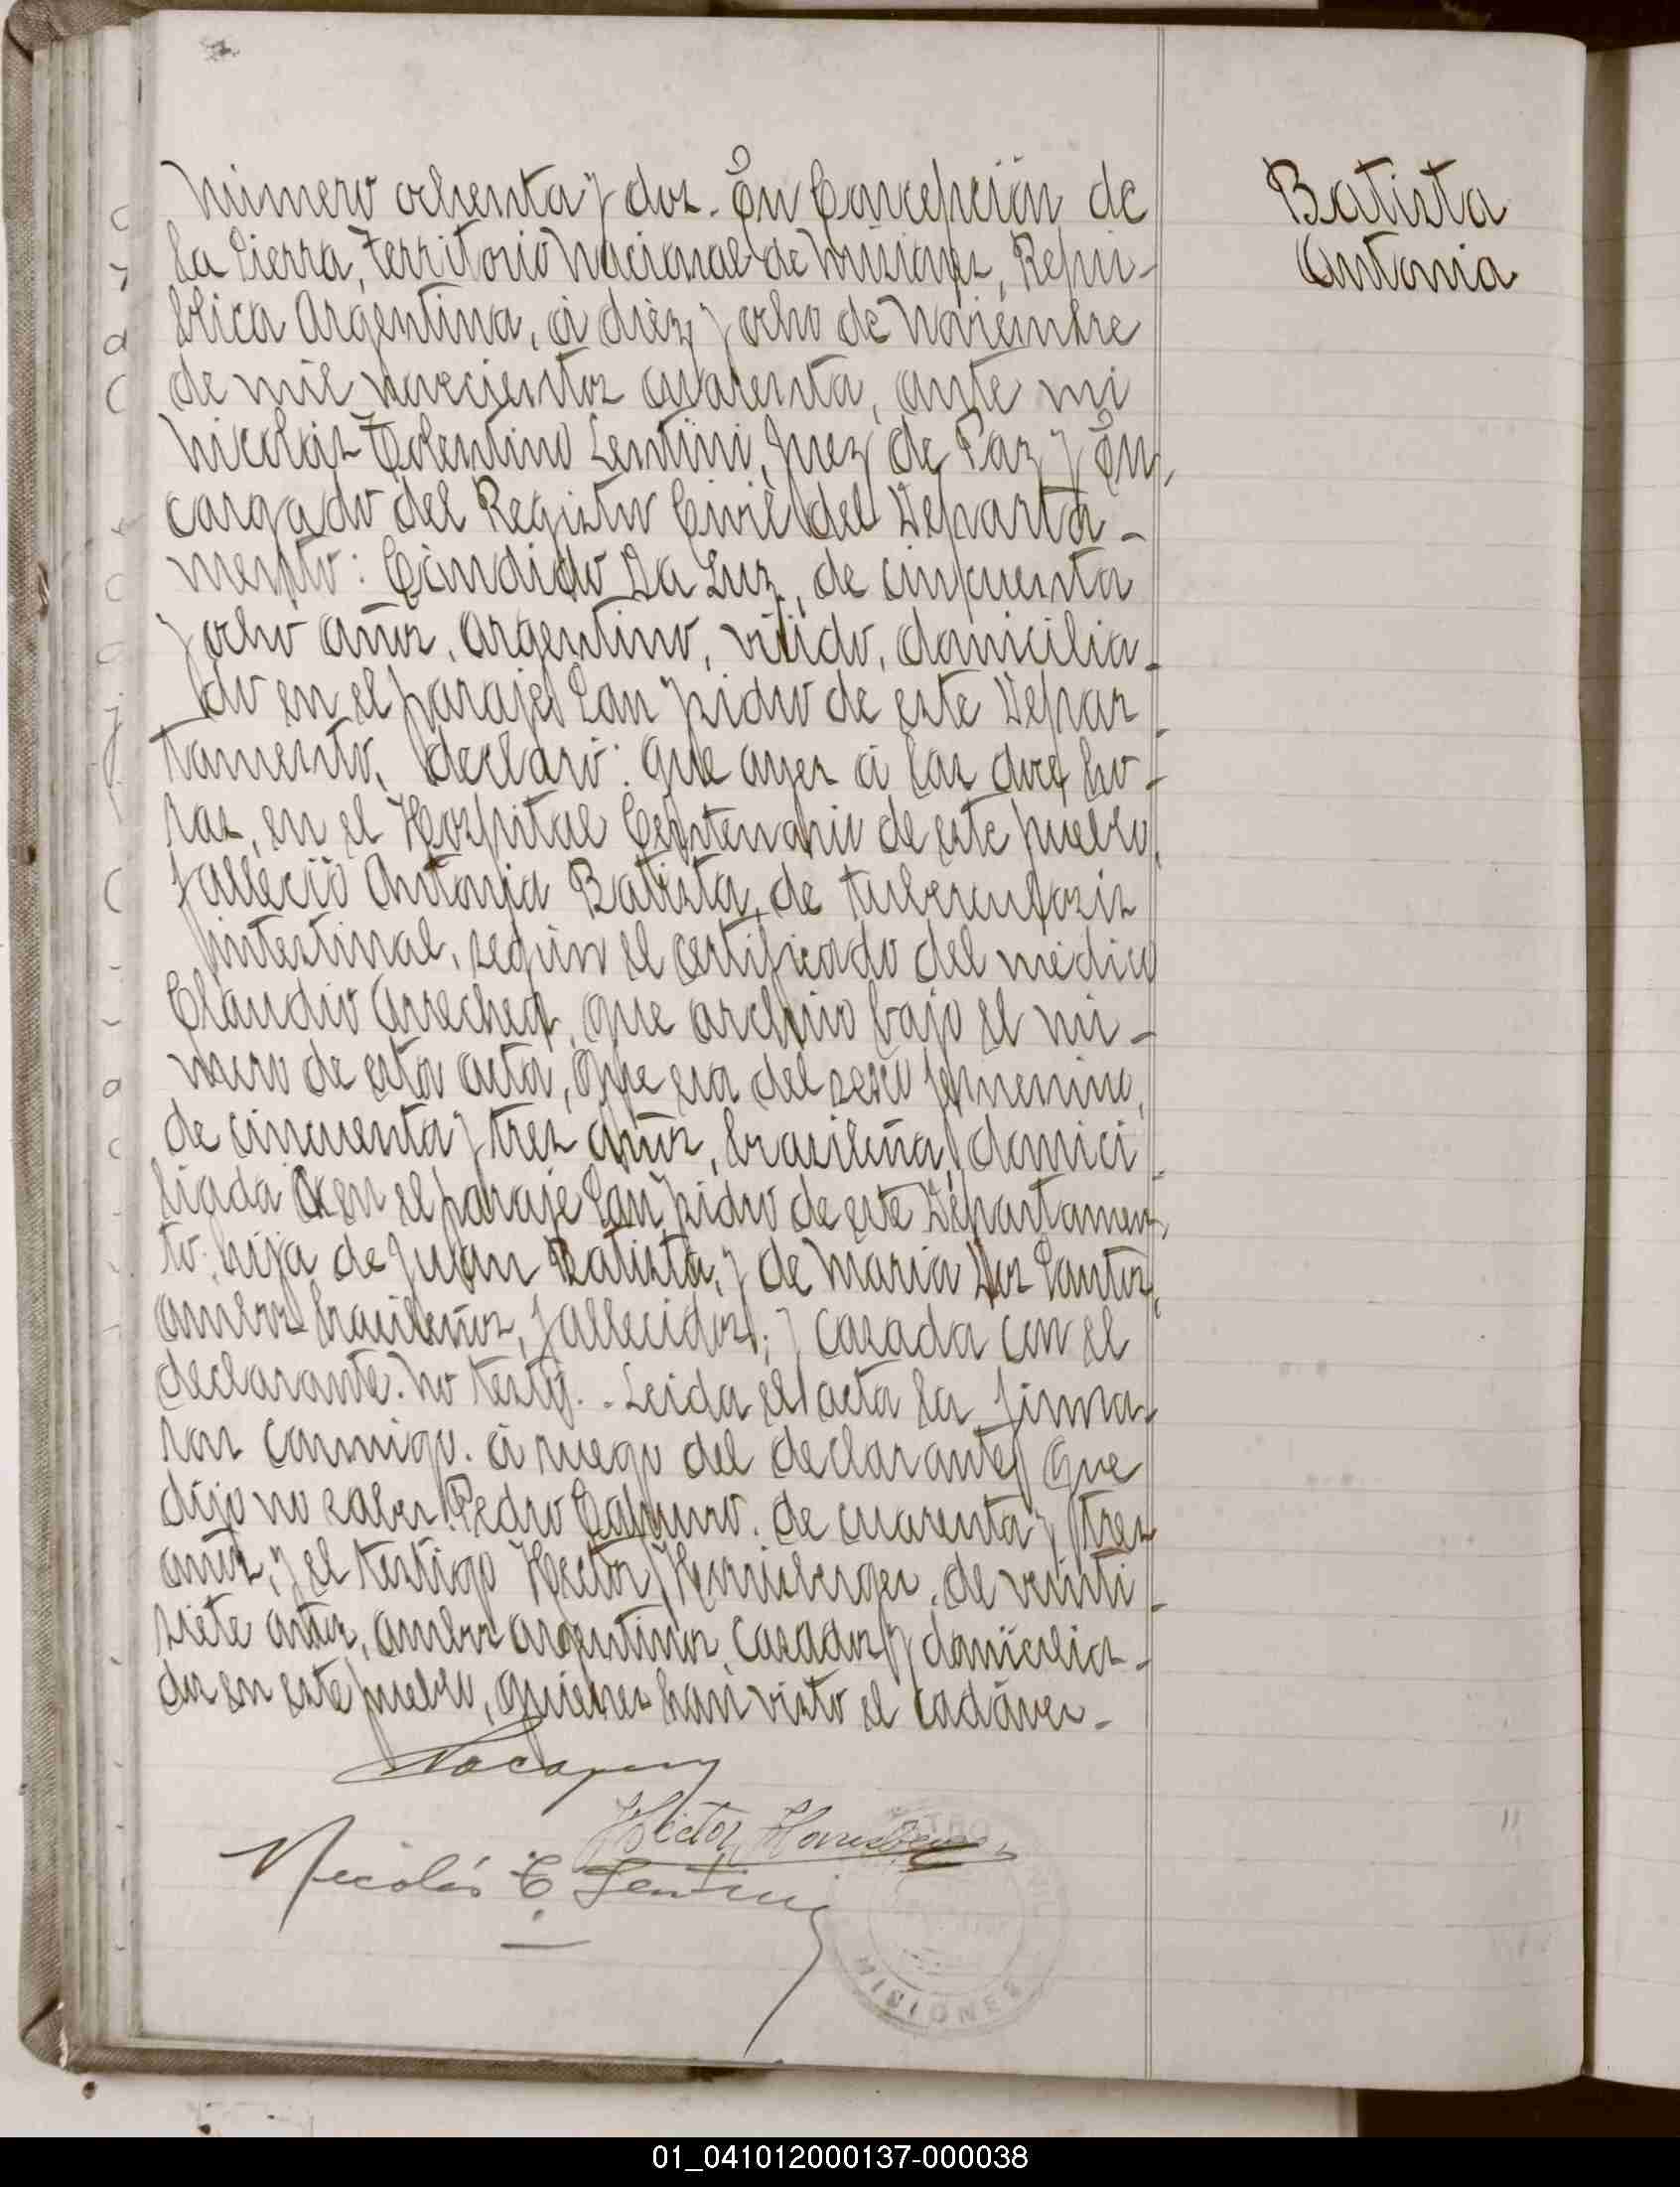 Número ochenta y dos. En Concepción de
la Sierra, Territorio Nacional de Misiones, Repú-
blica Argentina, á diéz y ocho de Noviembre
de mil novecientos cuarenta, ante mi
Nicolás Tolentino Lentini, Juez de Paz y En,
cargado del Registro Civil del Departa-
mento: Cándido Da Luz, de cincuenta
y ocho años, argentino, viúdo, domicilia-
do en el paraje San Ysidro de este Depar-
tamento, declaró: Que ayer á las doce ho-
ras, en el Hospital Centenario de este pueblo,
falleció Antonia Batista, de tuberculosis
intestinal, según el certificado del médico
Claudio Arrechea, que archivo bajo el nú-
mero de esta acta, Que era del sexo femenino,
de cincuenta y tres años, brasileña, domici-
liada en el paraje San Ysidro de este Departamen-
to; hija de Juan Batista, y de María Dos Santos,
ambos brasileños, fallecidos; y casada con el
declarante. No testó. - Leida el acta la firma-
ron conmigo. á ruego del declarante, que
dijo no saber, Pedro de cuarenta y tres
años, y el testigo Hector Hennisberger, de veinti-
siete años, ambos argentinos, casados y domicilia-
dos en este pueblo, quienes han visto el cadáver.-
Hector
Nicolás T. Lentini
MISIONES
Batista
Antonia
01_041012000137-000038